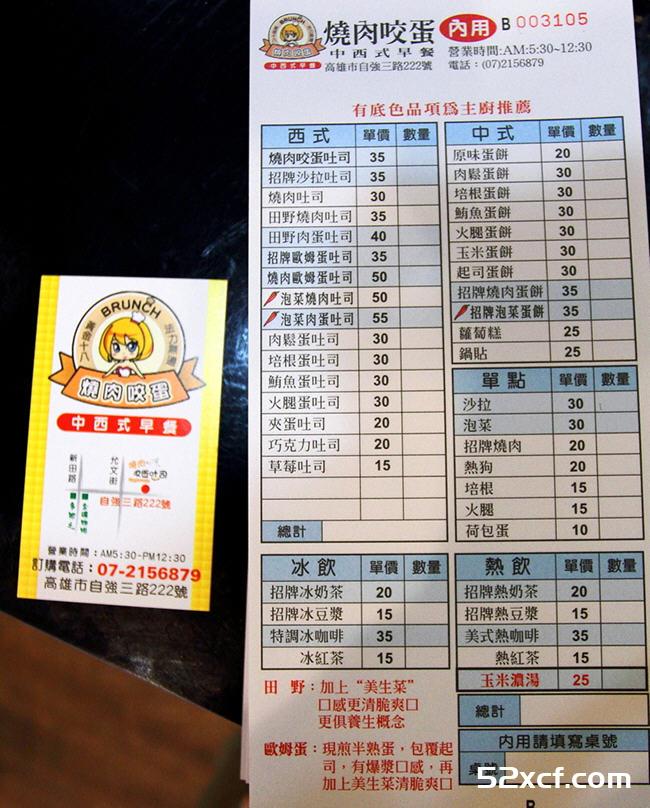 BRUNCH
黃金十八
活力無限
燒肉咬蛋
中西式早餐
新田路
允文街
自強三路222號
營業時間:AM5:30-PM12:30
訂購電話:07-2156879
高雄市自強三路222號
BRUNCH
燒肉咬蛋
中西式早餐
燒肉咬蛋 內用 B 003105
中西式早餐 營業時間:AM:5:30~12:30
高雄市自強三路222號 電話:(07)2156879
有底色品項為主廚推薦
西式 單價 數量
燒肉咬蛋吐司 35
招牌沙拉吐司 35
燒肉吐司 30
田野燒肉吐司 35
田野肉蛋吐司 40
招牌歐姆蛋吐司 35
燒肉歐姆蛋吐司 50
泡菜燒肉吐司 50
泡菜肉蛋吐司 55
肉鬆蛋吐司 30
培根蛋吐司 30
鮪魚蛋吐司 30
火腿蛋吐司 30
夾蛋吐司 20
巧克力吐司 20
草莓吐司 15
總計
中式 單價 數量
原味蛋餅 20
肉鬆蛋餅 30
培根蛋餅 30
鮪魚蛋餅 30
火腿蛋餅 30
玉米蛋餅 30
起司蛋餅 30
招牌燒肉蛋餅 35
招牌泡菜蛋餅 35
蘿蔔糕 25
鍋貼 25
單點 單價 數量
沙拉 30
泡菜 30
招牌燒肉 30
熱狗 20
培根 15
火腿 15
荷包蛋 10
冰飲 單價 數量
招牌冰奶茶 20
招牌冰豆漿 15
特調冰咖啡 35
冰紅茶 15
熱飲 單價 數量
招牌熱奶茶 20
招牌熱豆漿 15
美式熱咖啡 35
熱紅茶 15
玉米濃湯 25
總計
田 野:加上“美生菜”
口感更清脆爽口
更俱養生概念
歐姆蛋:現煎半熟蛋,包覆起
司,有爆漿口感,再
加上美生菜清脆爽口
內用請填寫桌號
桌號
52xcf.com
B